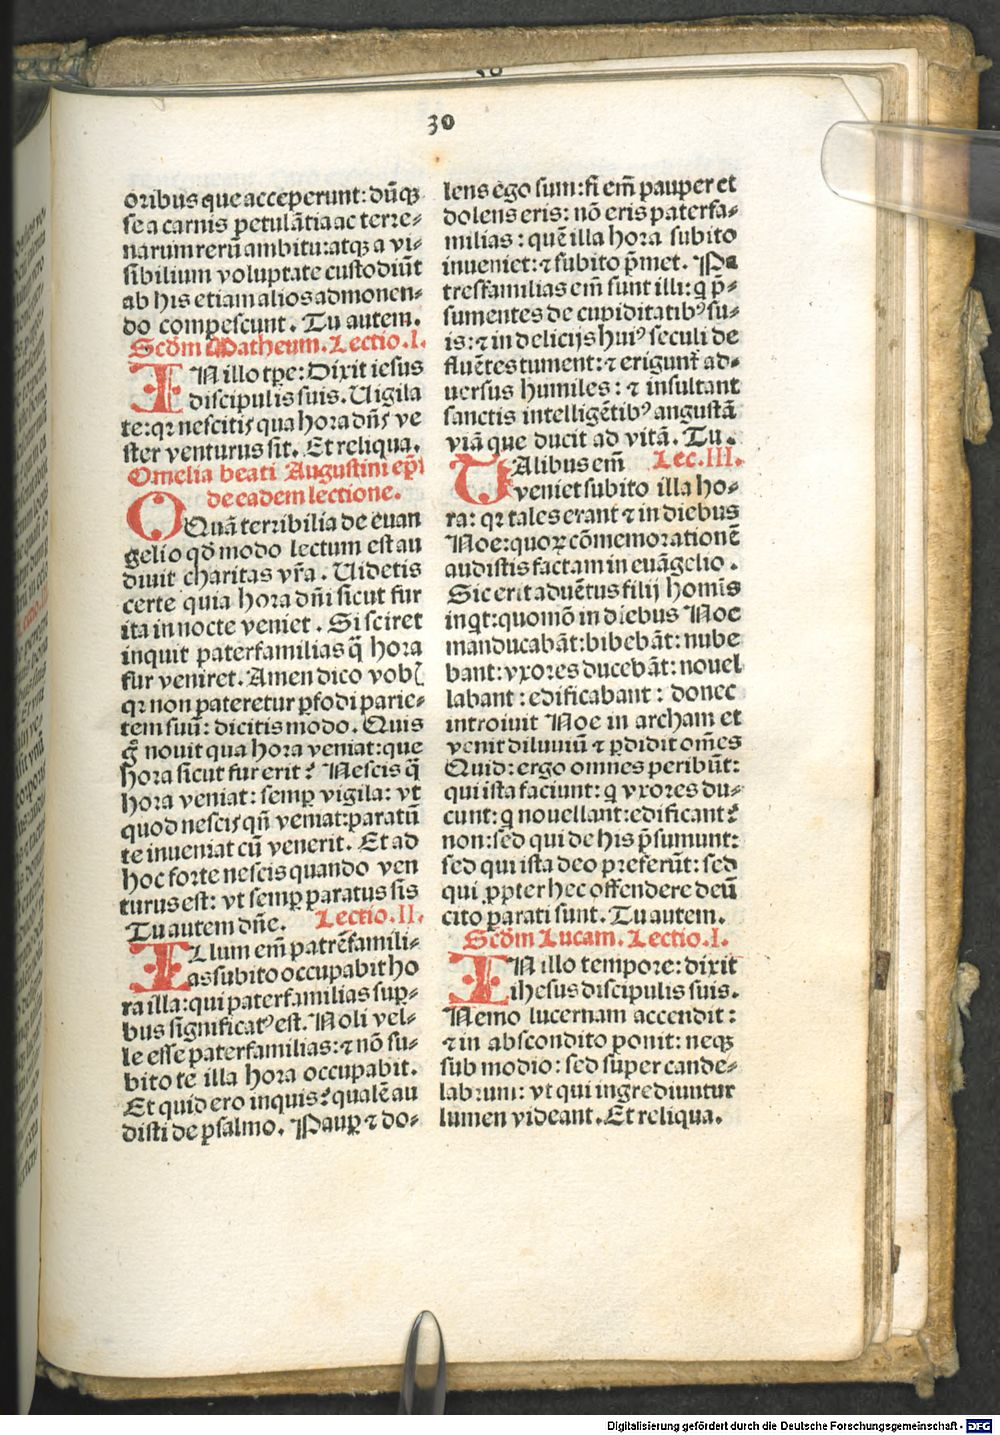 30
oribus que acceperunt: dũqꝫ
se a carnis petulãtia ac terre⸗
narum rerũ ambitu: atqꝫ a vi⸗
sibilium voluptate custodiũt
ab his etiam alios admonen⸗
do compescunt. Tu autem.
Scd̃m Matheum. Lectio. I.
IN illo tp̃e: Dixit iesus
discipulis suis. Uigila
te: qꝛ nescitis qua hora dñs ve
ster venturus sit. Et reliqua.
Omelia beati Augustini ep̃i
de eadem lectione.
OQuã terribilia de euan
gelio qd̃ modo lectum est au
diuit charitas vr̃a. Uidetis
certe quia hora dñi sicut fur
ita in nocte veniet. Si sciret
inquit paterfamilias q̃ hora
fur veniret. Amen dico vob
qꝛ non pateretur ꝑfodi parie⸗
tem suũ: dicitis modo. Quis
g̃ nouit qua hora veniat: que
hora sicut fur erit? Nescis q̃
hora veniat: semꝑ vigila: vt
quod nescis qñ veniat: paratũ
te inueniat cũ venerit. Et ad
hoc forte nescis quando ven
turus est: vt semꝑ paratus sis
Tu autem dñe. Lectio. II.
ILlum em̃ patrẽfamili⸗
as subito occupabit ho
ra illa: qui paterfamilias suꝑ⸗
bus significatꝰ est. Noli vel⸗
le esse paterfamilias: ⁊ nõ su⸗
bito te illa hora occupabit.
Et quid ero inquis? qualẽ au
disti de psalmo. Pauꝑ ⁊ do⸗
lens ego sum: si em̃ pauper et
dolens eris: nõ eris paterfa⸗
milias: quẽ illa hora subito
inueniet: ⁊ subito p̃met. Pa
tresfamilias em̃ sunt illi: q p̃⸗
sumentes de cupiditatibꝰ su⸗
is: ⁊ in delicijs huiꝰ seculi de
fluẽtes tument: ⁊ erigunt̃ ad⸗
uersus humiles: ⁊ insultant
sanctis intelligẽtibꝰ angustã
viã que ducit ad vitã. Tu.
TAlibus em̃ Lec. III.
veniet subito illa ho⸗
ra: qꝛ tales erant ⁊ in diebus
Noe: quoꝝ cõmemorationẽ
audistis factam in euãgelio.
Sic erit aduẽtus filij homis
inqt: quomõ in diebus Noe
manducabãt: bibebãt: nube
bant: vxores ducebãt: nouel
labant: edificabant: donec
introiuit Noe in archam et
venit diluuiũ ⁊ ꝑdidit om̃es
Quid: ergo omnes peribũt:
qui ista faciunt: q vxores du⸗
cunt: q nouellant: edificant?
non: sed qui de his p̃sumunt:
sed qui ista deo preferũt: sed
qui ꝓpter hec offendere deũ
cito parati sunt. Tu autem.
Scd̃m Lucam. Lectio. I.
IN illo tempore: dixit
ihesus discipulis suis.
Nemo lucernam accendit:
⁊ in abscondito ponit: neqꝫ
sub modio: sed super cande⸗
labrum: vt qui ingrediuntur
lumen videant. Et reliqua.
Digitalisierung gefördert durch die Deutsche Forschungsgemeinschaft - DFG